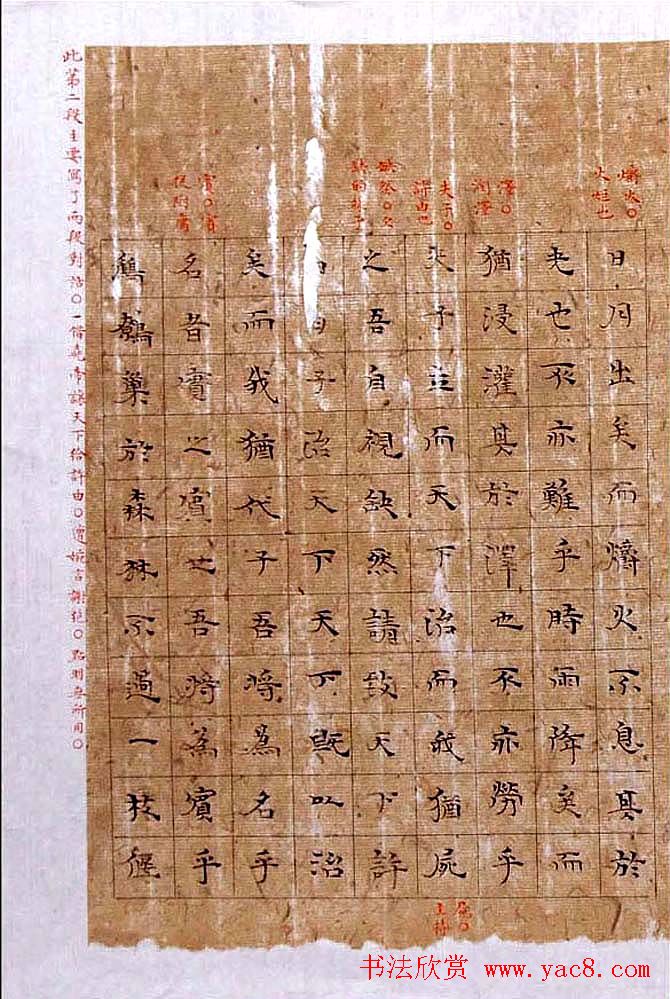 爝火〇
火炬也
澤〇
潤澤
夫子〇
許由也
缺然〇欠
缺的樣子
賓〇賓
從附庸
日月出矣而爝火不息其於
光也不亦難乎時雨降矣而
猶浸灌其於澤也不亦勞乎
夫子立而天下治而我猶屍
之吾自視缺然請致天下許
由曰子治天下天下既以治
矣而我猶代子吾將為名乎
名者實之賓也吾將為賓乎
鷦鷯巢於森林不過一枝偃
屍〇
主持
此第二段主要寫了兩段對話〇一借堯帝讓天下給許由〇遭婉言謝絕〇點明無所用〇
书法欣赏 www.yac8.com